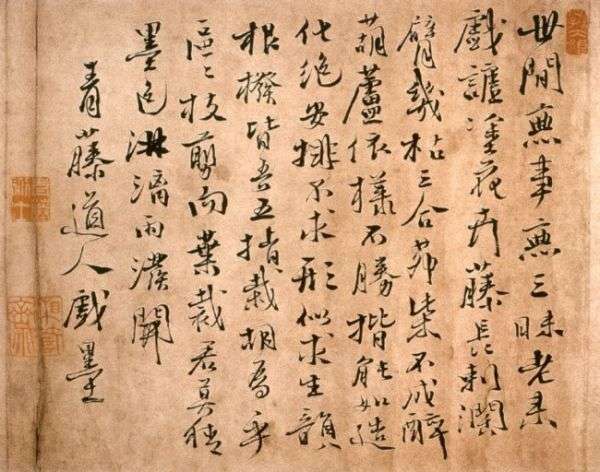 世間無事無三昧老來
戲謔塗花卉藤長刺闊
臂幾枯三合茆柴不成醉
葫蘆依樣不勝揩能如造
化絕安排不求形似求生韻
根撥皆吾五指栽胡為乎
區〻枝剪而葉裁君莫猜
墨色淋漓雨潑開
青藤道人戲墨